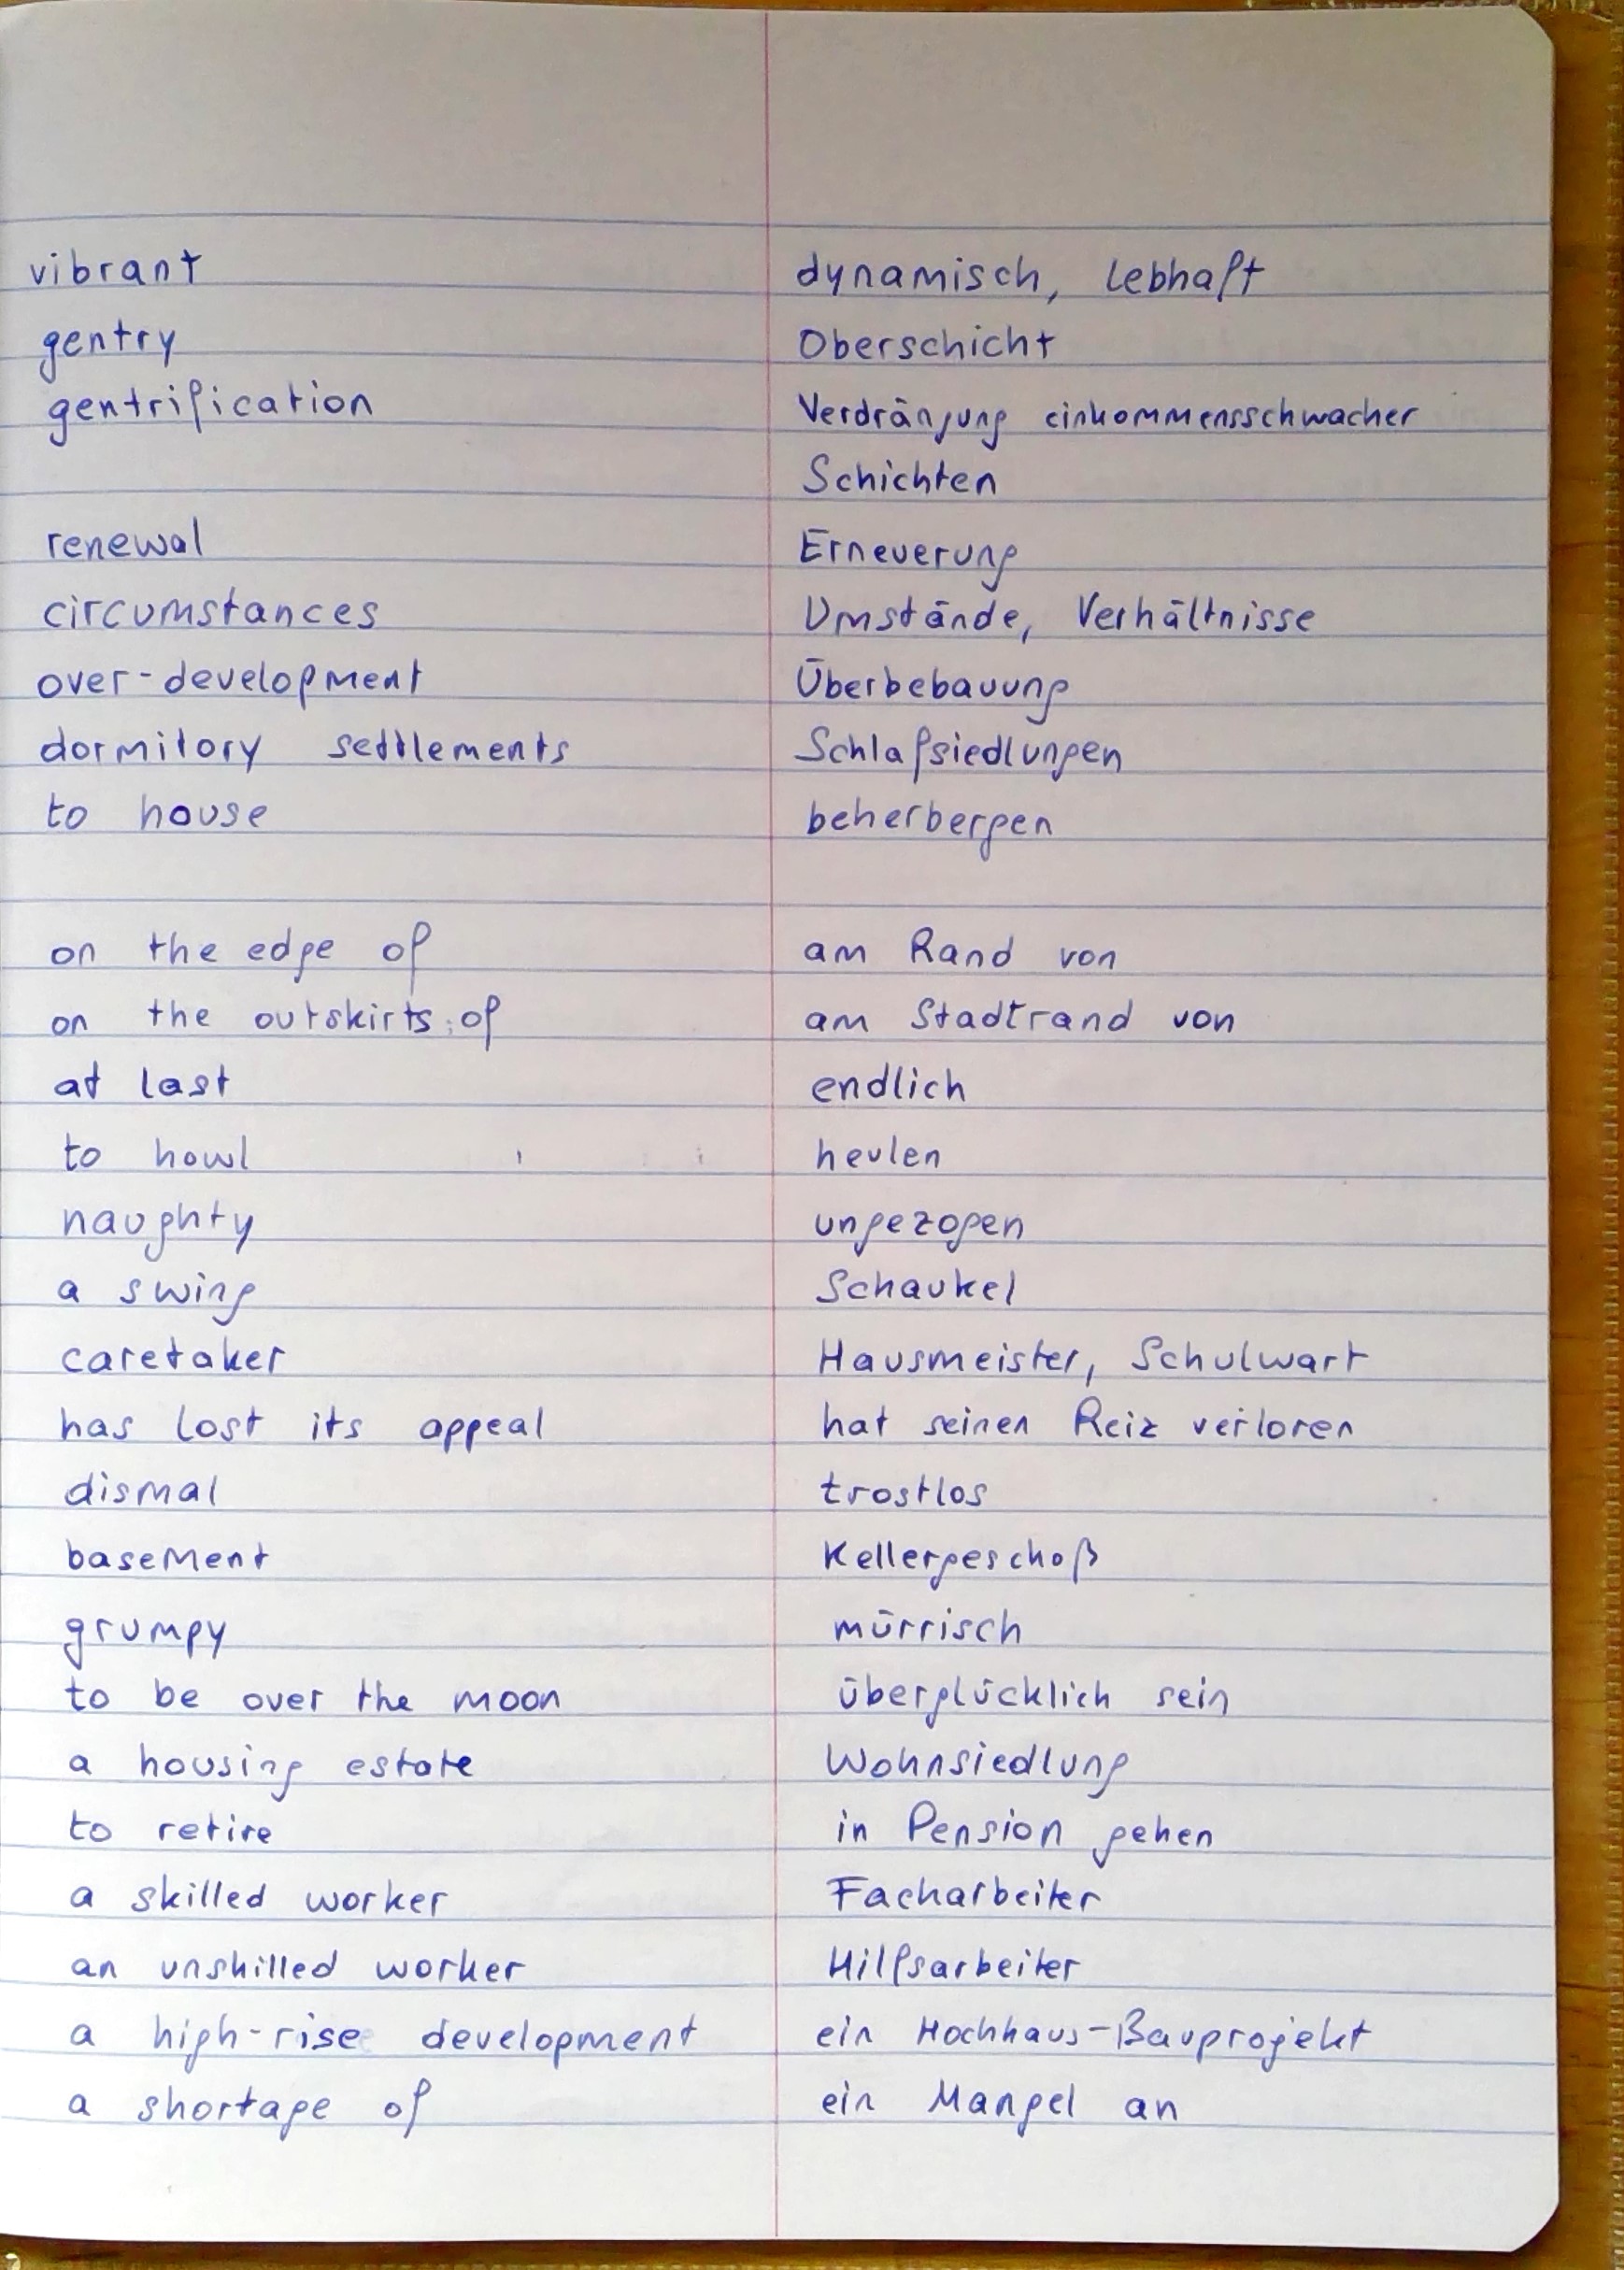 vibrant dynamisch, lebhaft
gentry Oberschicht
gentrification Verdrängung einkommensschwacher
Schichten
renewal Erneuerung
circumstances Umstände, Verhältnisse
over-development Überbebauung
dormitory settlements Schlafsiedlungen
to house beherbergen
on the edge of am Rand von
on the outskirts of am Stadtrand von
at last endlich
to howl heulen
naughty ungezogen
a swing Schaukel
caretaker Hausmeister, Schulwart
has lost its appeal hat seinen Reiz verloren
dismal trostlos
basement Kellergeschoß
grumpy mürrisch
to be over the moon überglücklich sein
a housing estate Wohnsiedlung
to retire in Pension gehen
a skilled worker Facharbeiter
an unskilled worker Hilfsarbeiter
a high-rise development ein Hochhaus-Bauprojekt
a shortage of ein Mangel an